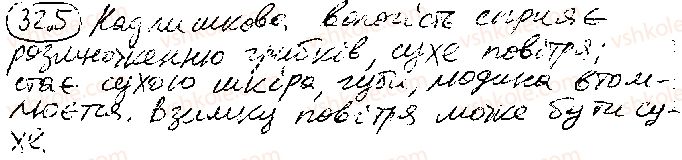 32.5 Надлишкова вологість сприяє
розмноженню грибків, сухе повітря;
стає сухою шкіра, губи, людина втом-
люється. Взимку повітря може бути су-
хе.